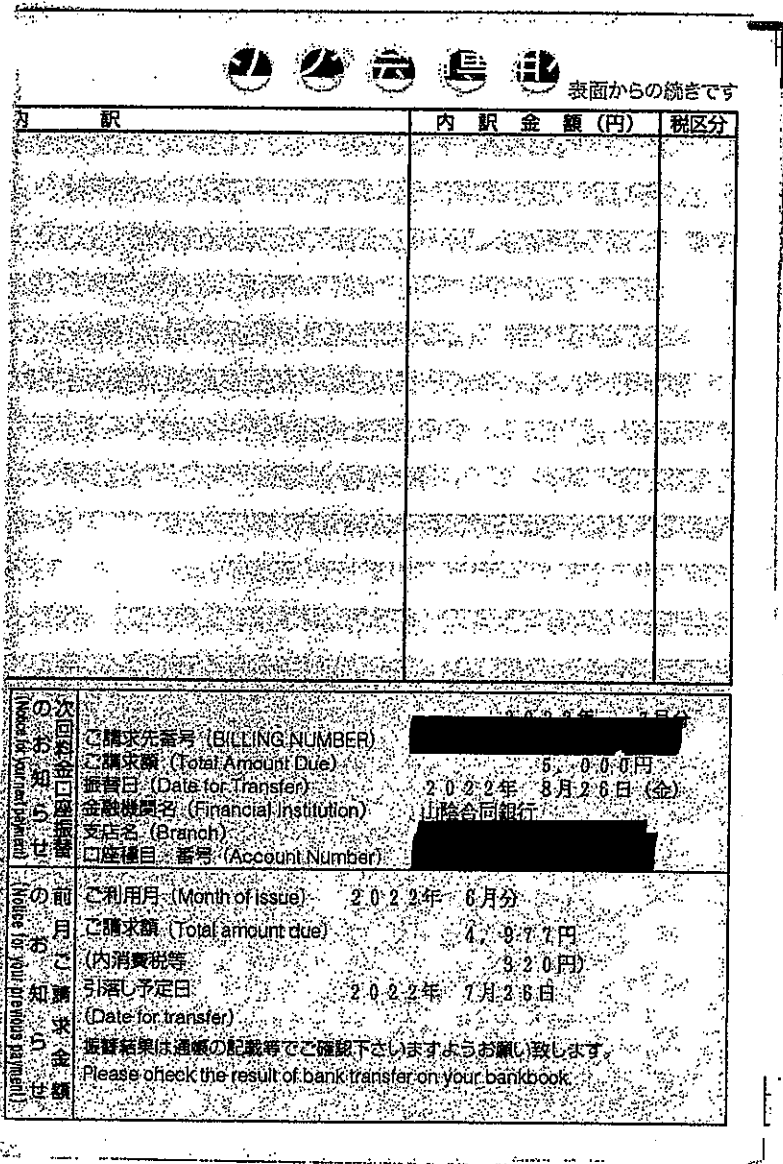 表面からの続きです
内 訳 内 訳 金 額 (円) 税区分
次回料金口座振替のお知らせ
(Notice for your next payment)
2022年 7月分
ご請求先番号 (BILLING NUMBER)
ご請求額 (Total Amount Due) 5,000円
振替日 (Date for Transfer) 2022年 8月26日 (金)
金融機関名 (Financial Institution) 山陰合同銀行
支店名 (Branch)
口座種目 番号 (Account Number)
前月ご請求金額のお知らせ
(Notice for your previous payment)
ご利用月 (Month of issue) 2022年 6月分
ご請求額 (Total amount due) 4,977円
(内消費税等 320円)
引落し予定日 2022年 7月26日
(Date for transfer)
振替結果は通帳の記載等でご確認下さいますようお願い致します。
Please check the result of bank transfer on your bankbook.